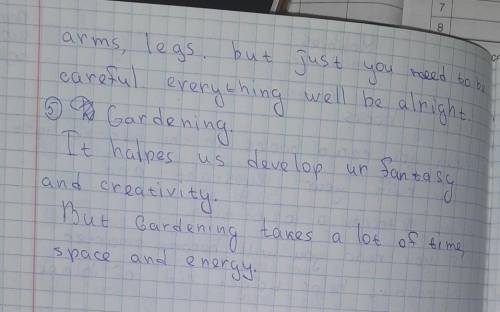 arms, legs. but just you need to be
careful everything well be alright.
⑤ Gardening.
It halpes us develop ur fantasy
and creativity.
But Gardening takes a lot of time,
space and energy.
7
8